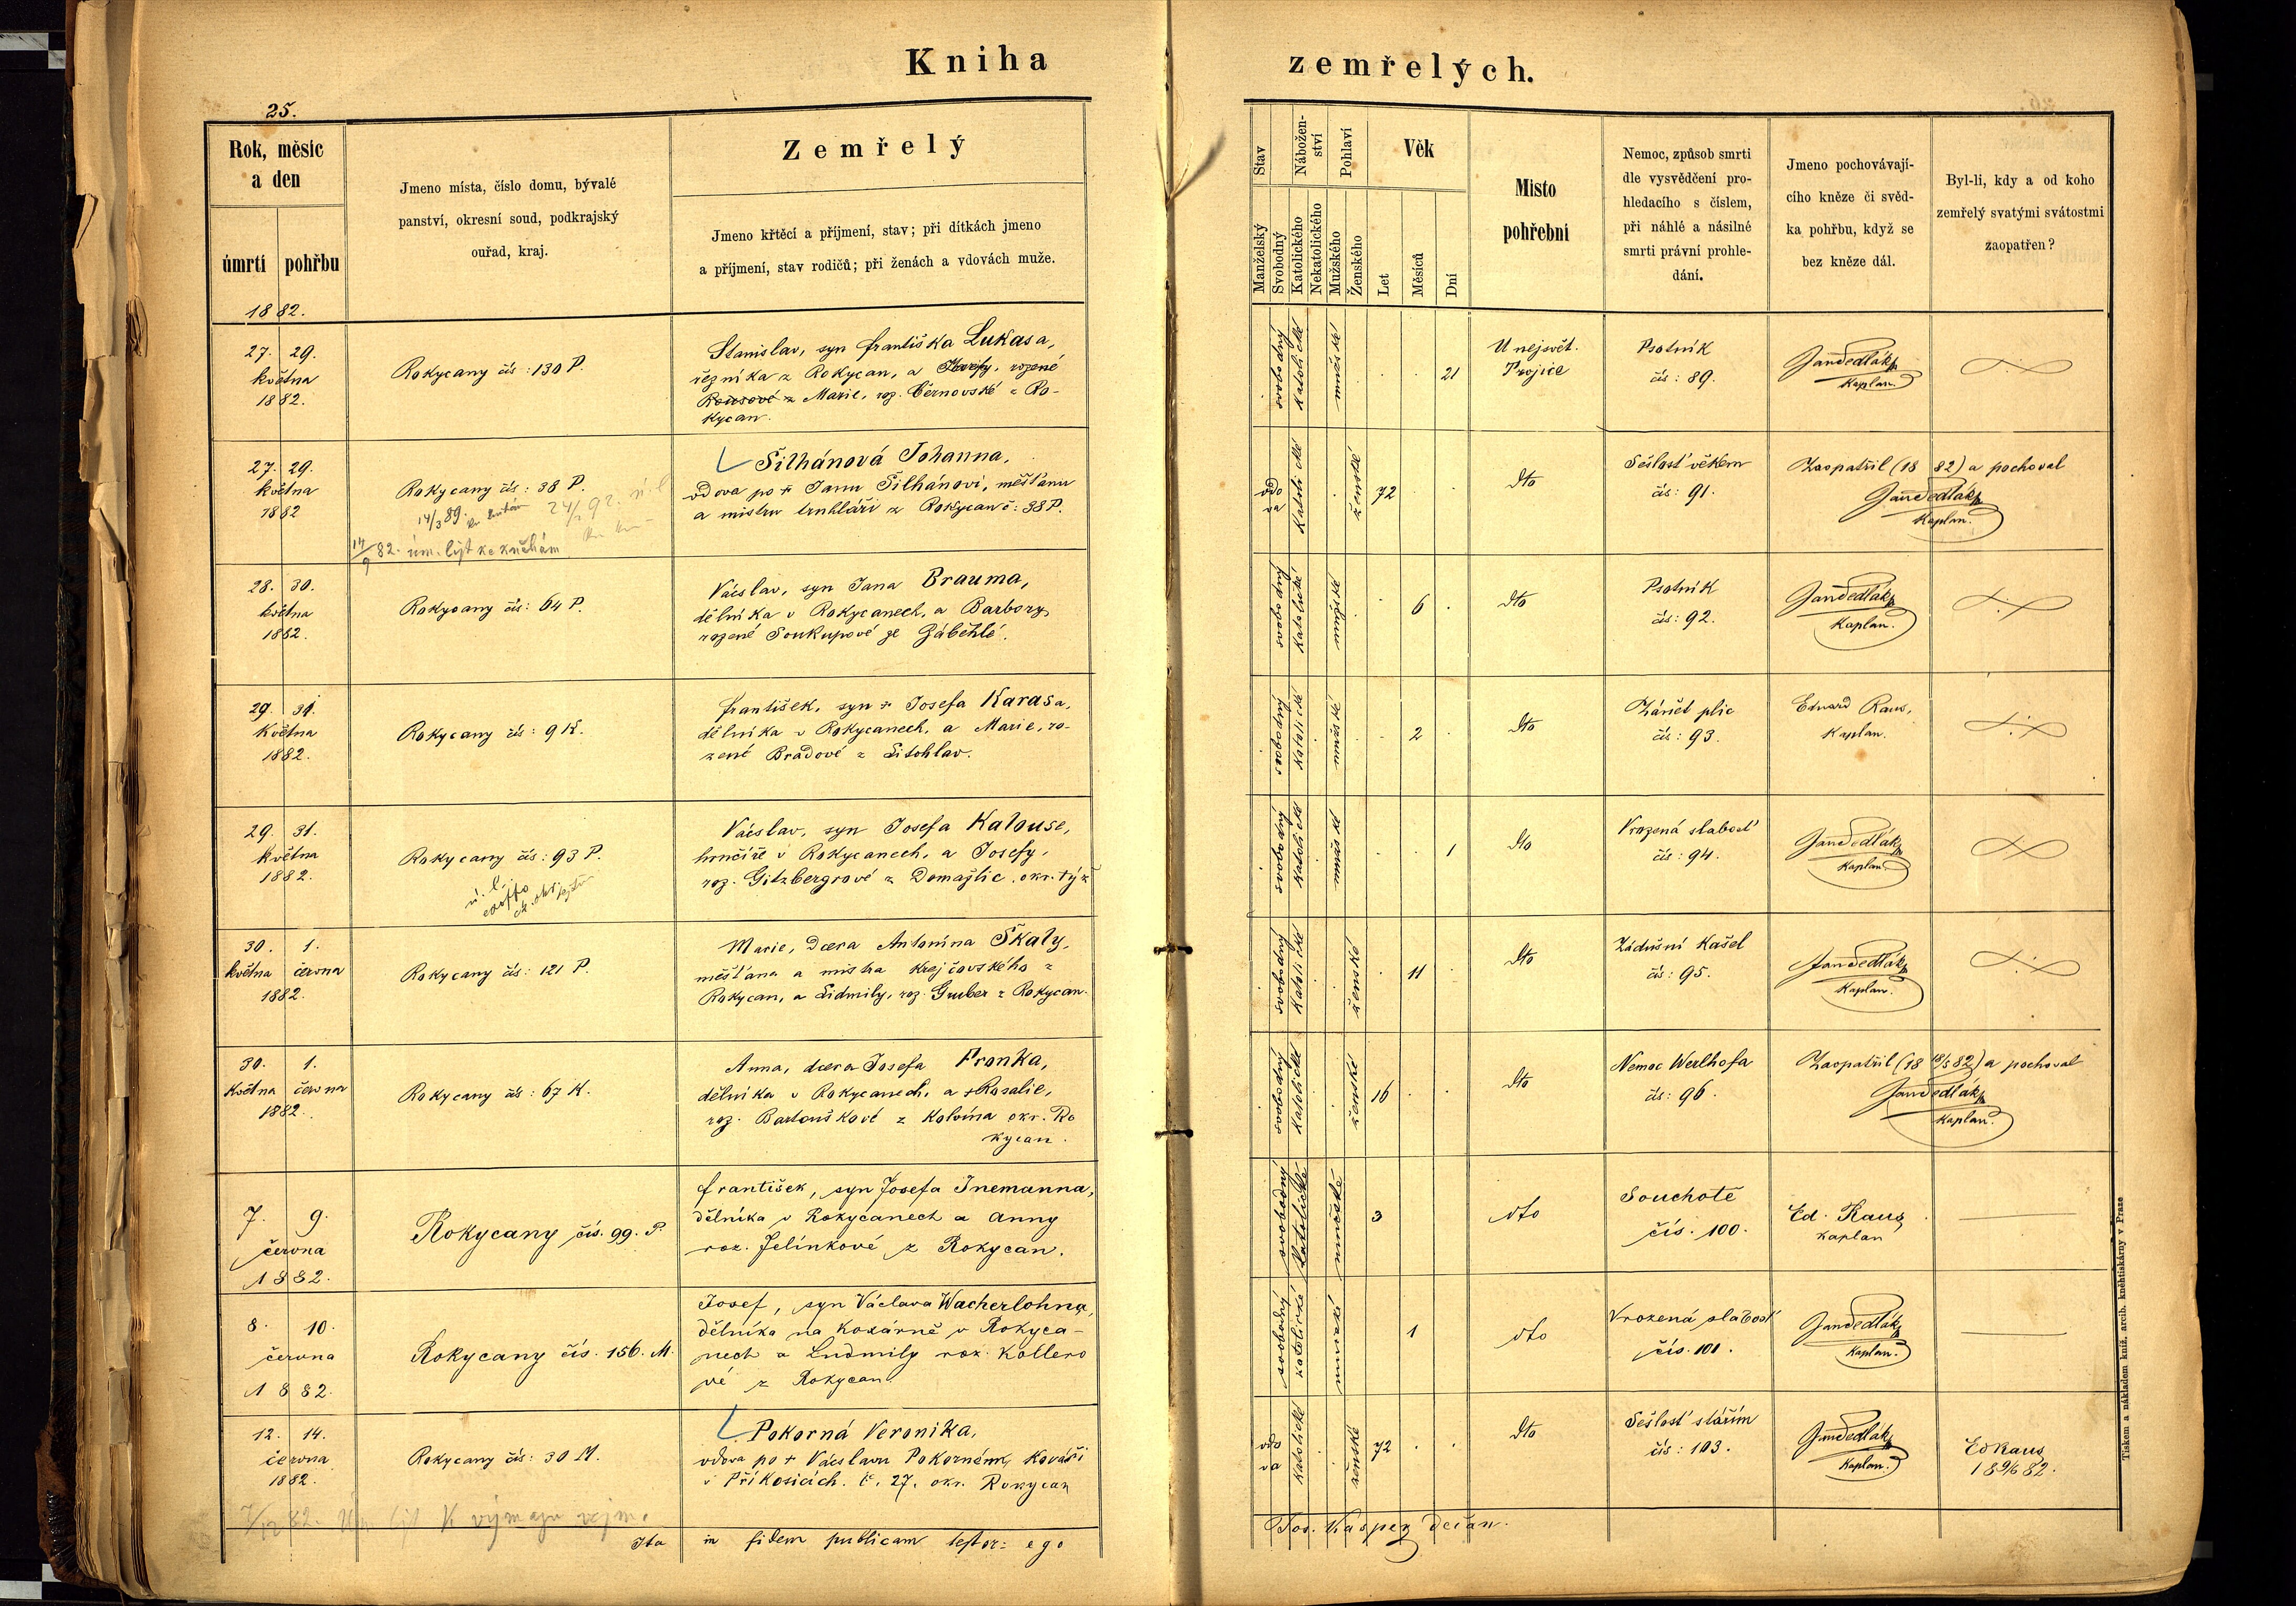 Kniha zemřelých.
25.
Rok, měsíc
a den
úmrtí
pohřbu
Jmeno místa, číslo domu, bývalé
panství, okresní soud, podkrajský
ouřad, kraj.
Zemřelý
Jmeno křtěcí a příjmení, stav; při dítkách jmeno
a příjmení, stav rodičů; při ženách a vdovách muže.
Stav
Manželský
Svobodný
Nábožen-
ství
Katolického
Nekatolického
Pohlaví
Mužského
Ženského
Věk
Let
Měsíců
Dní
Místo
pohřební
Nemoc, způsob smrti
dle vysvědčení pro-
hledacího s číslem,
při náhlé a násilné
smrti právní prohle-
dání.
Jmeno pochovávají-
cího kněze či svěd-
ka pohřbu, když se
bez kněze dál.
Byl-li, kdy a od koho
zemřelý svatými svátostmi
zaopatřen?
1882.
27. 29.
května
1882.
Rokycany čís: 130 P.
Stanislav, syn Františka Lukasa,
řezníka z Rokycan, a Josefy, rozené
Rousové z Marie, roz. Černovské z Ro-
kycan.
svobodný
katolické
mužské
21
U nejsvět.
Trojice
Psotník
čís: 89.
Jan Sedlák
Kaplan.
27. 29.
května
1882
Rokycany čís: 38 P.
14/3 89.
24/ 92. ú. l.
14/9 82. úm. list ke knihám
Šilhánová Johanna,
vdova po † Janu Šilhánovi, měšťanu
a mistru truhláři z Rokycan č: 38 P.
vdo
va
katolické
ženské
72
dto
Sešlosť věkem
čís: 91.
Zaopatřil (18 82) a pochoval
Jan Sedlák
Kaplan.
28. 30.
května
1882.
Rokycany čís: 64 P.
Václav, syn Jana Brauma,
dělníka v Rokycanech, a Barbory,
rozené Soukupové ze Záběhlé.
svobodný
katolické
mužské
6
dto
Psotník
čís: 92.
Jan Sedlák
Kaplan.
29. 31.
Května
1882.
Rokycany čís: 9 K.
František, syn † Josefa Karasa,
dělníka v Rokycanech, a Marie, ro-
zené Bradové z Litohlav.
svobodný
katolické
mužské
2
dto
Zánět plic
čís: 93.
Eduard Raus,
Kaplan.
29. 31.
května
1882.
Rokycany čís: 93 P.
ú. l.
Václav, syn Josefa Kalouse,
hrnčíře v Rokycanech, a Josefy,
roz. Gitzbergrové z Domažlic, okr. týž
svobodný
katolické
mužské
1
dto
Vrozená slabosť
čís: 94.
Jan Sedlák
Kaplan.
30. 1.
května června
1882.
Rokycany čís: 121 P.
Marie, dcera Antonína Škaly,
měšťana a mistra krejčovského z
Rokycan, a Lidmily, roz. Gruber z Rokycan.
svobodný
katolické
ženské
11
dto
Zádušní kašel
čís: 95.
Jan Sedlák
Kaplan.
30. 1.
Května června
1882.
Rokycany čís: 67 K.
Anna, dcera Josefa Fronka,
dělníka v Rokycanech, a † Rosalie,
roz. Bartouškové z Kolvína okr. Ro
kycan.
svobodný
katolické
ženské
16
dto
Nemoc Werlhofa
čís: 96.
Zaopatřil (18 18/5 82) a pochoval
Jan Sedlák
Kaplan.
7. 9.
června
1882.
Rokycany čís. 99. P.
František, syn Josefa Inemanna,
dělníka v Rokycanech a Anny
roz. Jelínkové z Rokycan.
svobodný
katolické
mužské
3
dto
Souchotě
čís. 100.
Ed. Raus
kaplan
8. 10.
června
1882.
Rokycany čís. 156. M.
Josef, syn Václava Wacherlohna,
dělníka na Kovárně v Rokyca-
nech a Ludmily roz. Kollero
vé z Rokycan.
svobodný
katolické
mužské
1
dto
Vrozená slabosť
čís. 101.
Jan Sedlák
Kaplan.
12. 14.
června
1882.
Rokycany čís: 30 M.
Pokorná Veronika,
vdova po † Václavu Pokorném, Kováři
v Příkosicích. č. 27. okr. Rokycan
vdo
va
katolické
ženské
72
dto
Sešlosť stářím
čís: 103.
Jan Sedlák
Kaplan.
Ed Raus
18 9/6 82.
Ita in fidem publicam testor: ego
Jos. Kašpar děkan.
Tiskem a nákladem kníž. arcib. knihtiskárny v Praze